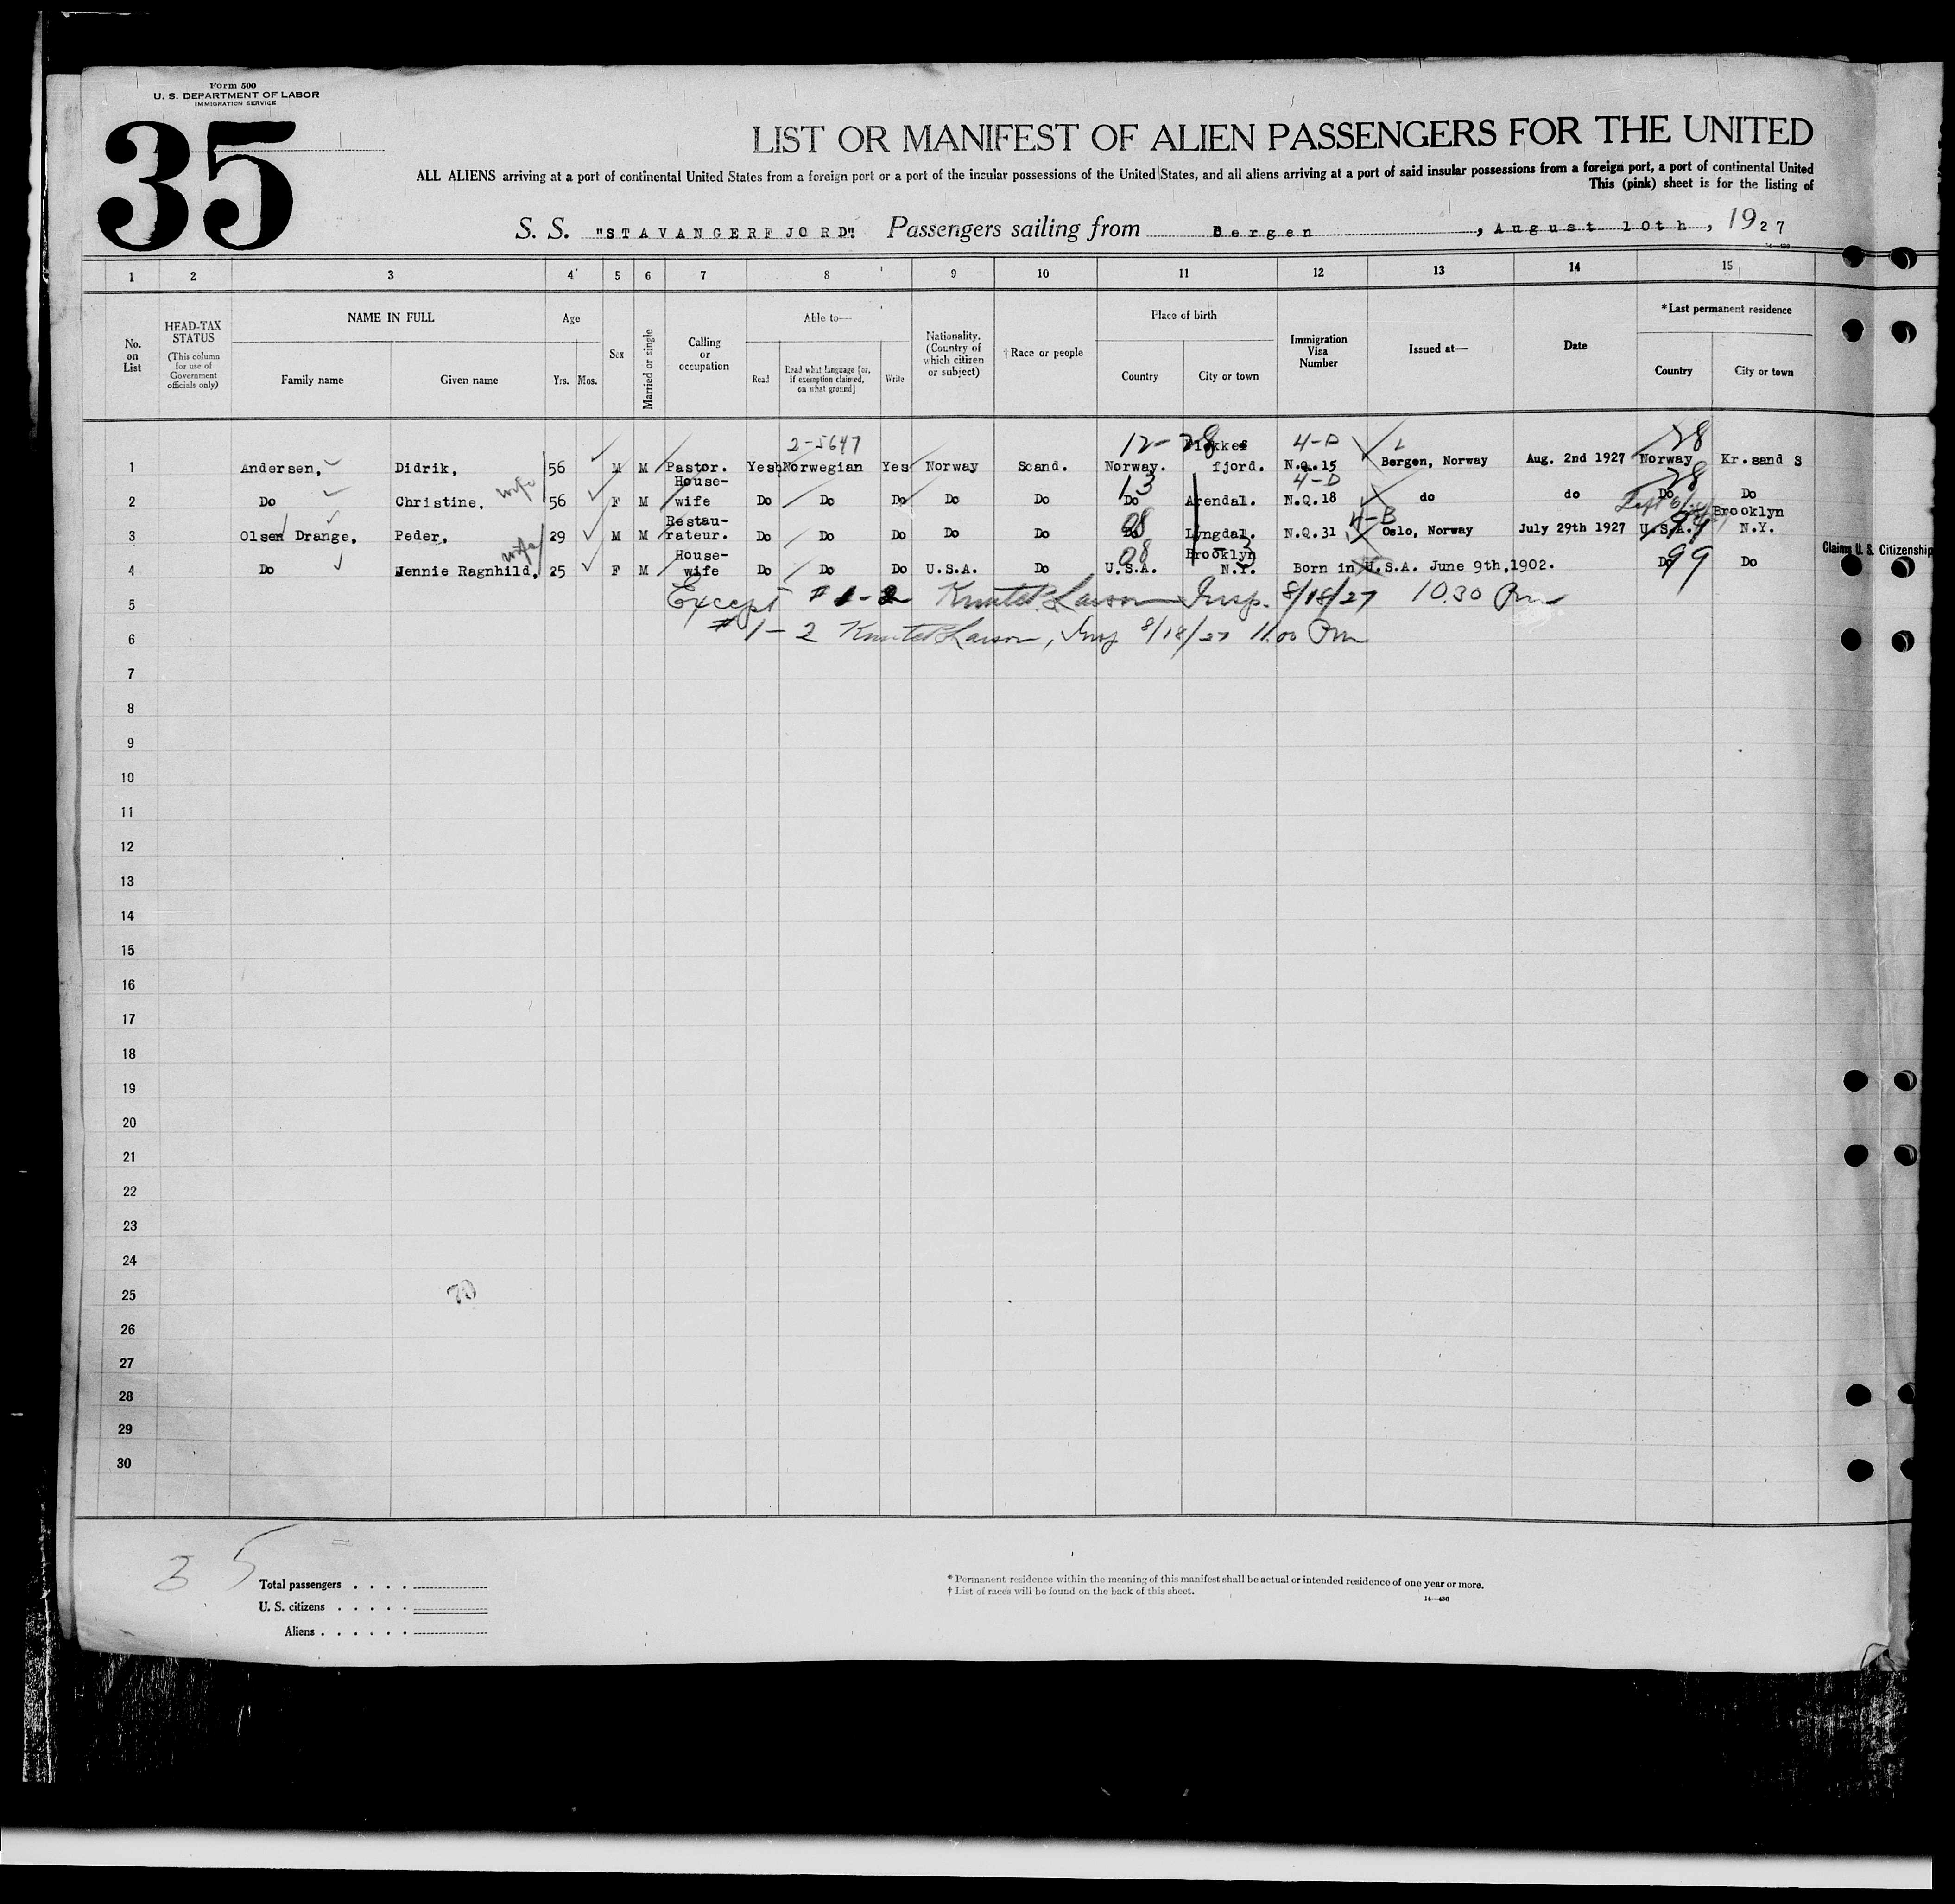 Form 500
U. S. DEPARTMENT OF LABOR
IMMIGRATION SERVICE
35
LIST OR MANIFEST OF ALIEN PASSENGERS FOR THE UNITED
ALL ALIENS arriving at a port of continental United States from a foreign port or a port of the insular possessions of the United States, and all aliens arriving at a port of said insular possessions from a foreign port, a port of continental United
This (pink) sheet is for the listing of
S. S. "STAVANGERFJORD". Passengers sailing from Bergen, August 10th, 1927
1 2 3 4 5 6 7 8 9 10 11 12 13 14 15
No. on List
HEAD-TAX STATUS (This column for use of Government officials only)
NAME IN FULL
Family name Given name
Age
Yrs. Mos.
Sex
Married or single
Calling or occupation
Able to—
Read Read what language [or, if exemption claimed, on what ground] Write
Nationality. (Country of which citizen or subject)
†Race or people
Place of birth
Country City or town
Immigration Visa Number
Issued at—
Date
*Last permanent residence
Country City or town
2-5647 12-28 4-D 28
1 Andersen, Didrik, 56 M M Pastor. Yes Norwegian Yes Norway Scand. Norway. Flekkefjord. N.Q.15 Bergen, Norway Aug. 2nd 1927 Norway Kr.sand S
wife 13 4-D 28
2 Do Christine, 56 F M House-wife Do Do Do Do Do Do Arendal. N.Q.18 do do Do Do
08 4-B 99
3 Olsen Drange, Peder, 29 M M Restau-rateur. Do Do Do Do Do Lyngdal. N.Q.31 Oslo, Norway July 29th 1927 U.S.A. Brooklyn N.Y.
wife 08 3 99
4 Do Jennie Ragnhild, 25 F M House-wife Do Do Do U.S.A. Do U.S.A. Brooklyn N.Y. Born in U.S.A. June 9th,1902. Do Do
Claims U. S. Citizenship
5 Except #1-2 Larson Insp. 8/18/27 10.30 Pm
6 #1-2 Larson, Insp 8/18/27 11.00 Pm
7
8
9
10
11
12
13
14
15
16
17
18
19
20
21
22
23
24
25
26
27
28
29
30
3 5
Total passengers
U. S. citizens
Aliens
* Permanent residence within the meaning of this manifest shall be actual or intended residence of one year or more.
† List of races will be found on the back of this sheet.
14—430